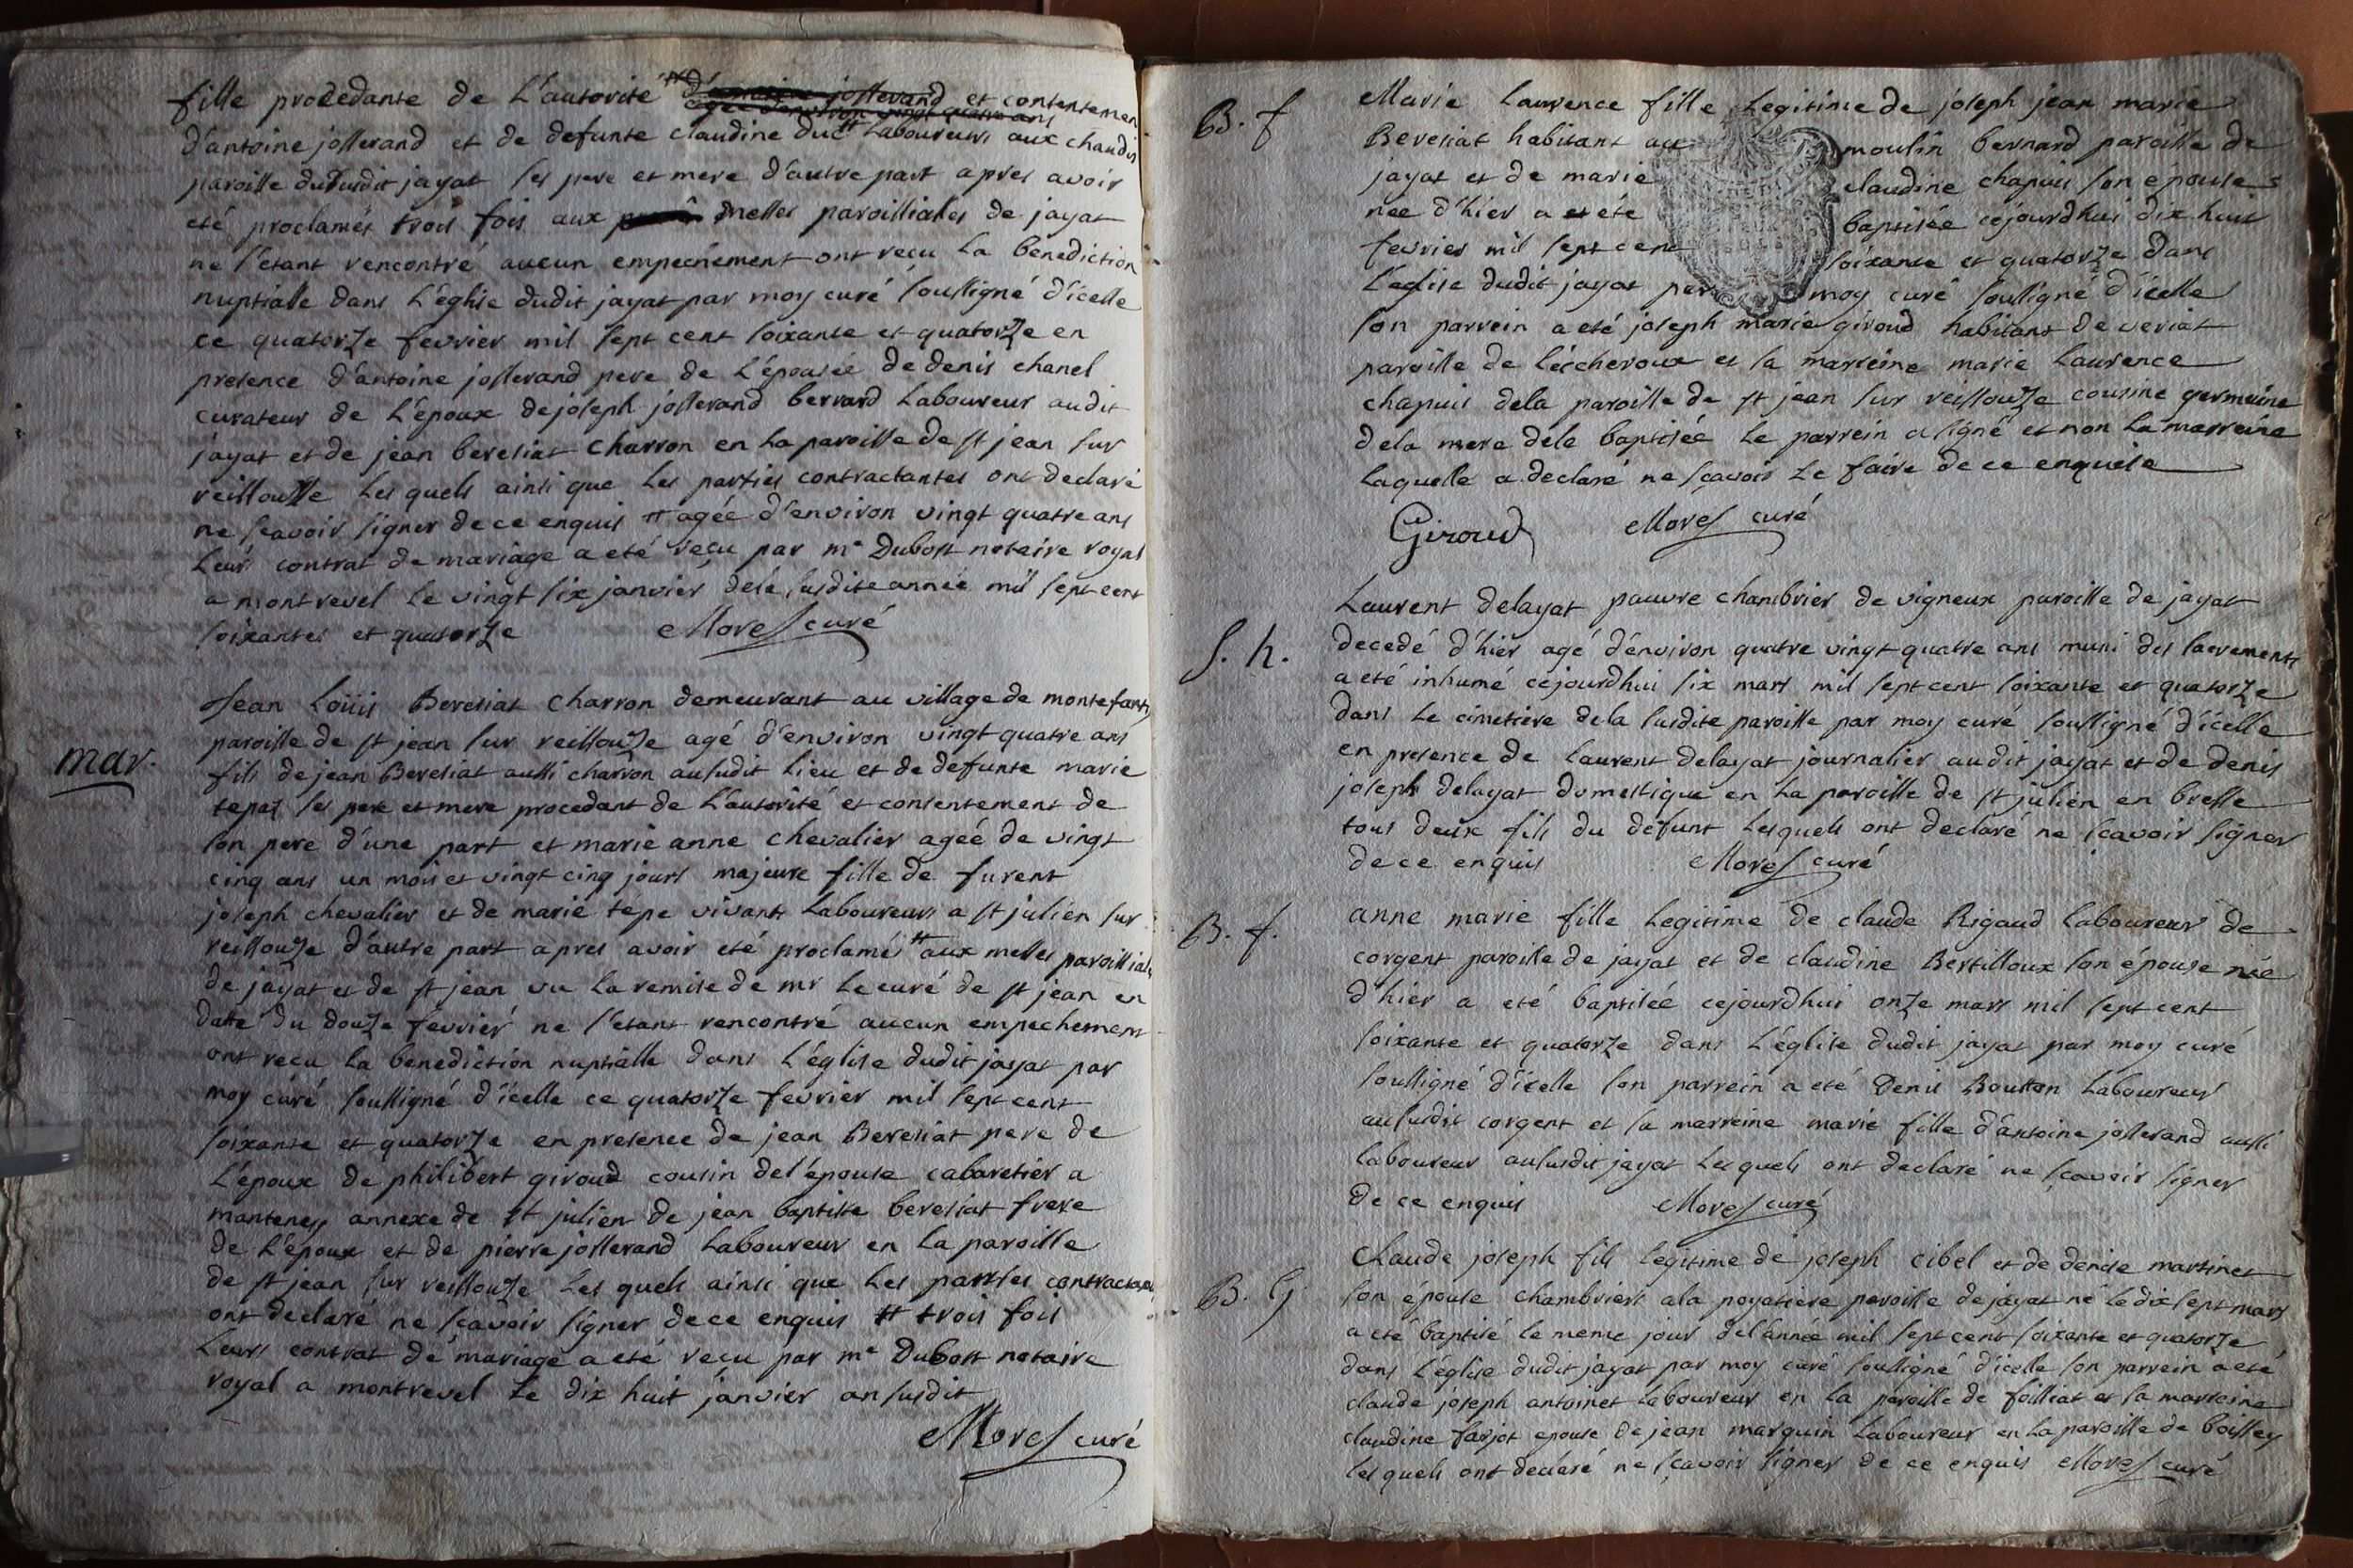 fille procedante de L'autorité et consentemen
d'antoine josserand et de defunte claudine duc Laboureurs aux chaudis
paroisse dususdit jayat ses pere et mere d'autre part apres avoir
eté proclamés trois fois aux messes paroissiales de jayat
ne s'etant rencontré aucun empechement ont recu La benediction
nuptialle dans L'eglise dudit jayat par moy curé soussigné d'icelle
ce quatorze fevrier mil sept cent soixante et quatorze en
presence d'antoine josserand pere de L'épousée de denis chanel
curateur de L'époux de joseph josserand bernard Laboureur audit
jayat et de jean beresiat charron en La paroisse de st jean sur
reissouse Les quels ainsi que Les parties contractantes ont declaré
ne scavoir signer de ce enquis # agée d'environ vingt quatre ans
Leurs contrat de mariage a eté recu par me Dubost notaire royal
a montrevel Le vingt six janvier dela susdite année mil sept cent
soixantes et quatorze Morel curé
mar.
Jean Loüis Beresiat charron demeurant au village de montefanty
paroisse de st jean sur reissouze agé d'environ vingt quatre ans
fils de jean Beresiat aussi charron aususdit Lieu et de defunte marie
tepaz ses pere et mere procedant de L'autorité et consentement de
son pere d'une part et marie anne chevalier agée de vingt
cinq ans un mois et vingt cinq jours majeure fille de furent
joseph chevalier et de marie tepe vivants Laboureurs a st julien sur
reissouze d'autre part apres avoir eté proclamé # aux messes paroissiales
de jayat et de st jean vu La remise de mr Le curé de st jean en
datte du douze fevrier ne s'etant rencontré aucun empechement
ont recu La benediction nuptialle dans L'église dudit jayat par
moy curé soussigné d'icelle ce quatorze fevrier mil sept cent
soixante et quatorze en presence de jean Beresiat pere de
L'époux de philibert giroud cousin de l'épouse cabaretier a
mantenay annexe de st julien de jean baptiste beresiat frere
de L'époux et de pierre josserand Laboureur en La paroisse
de st jean sur reissouze Les quels ainsi que Les parties contractantes
ont declaré ne scavoir signer de ce enquis # trois fois
Leurs contrat de mariage a eté recu par me Dubost notaire
royal a montrevel Le dix huit janvier an susdit
Morel curé
B. f
Marie Laurence fille Legitime de joseph jean marie
Beresiat habitant au moulin bernard paroisse de
jayat et de marie claudine chapuis son épouse
née d'hier a eté baptisée cejourdhui dix huit
fevrier mil sept cent soixante et quatorze dans
L'eglise dudit jayat par moy curé soussigné d'icelle
son parrein a eté joseph marie giroud habitant de veriat
paroisse de lescheroux et sa marreine marie Laurence
chapuis dela paroisse de st jean sur reissouze cousine germaine
dela mere dela baptisée Le parrein a signé et non La marreine
Laquelle a declaré ne scavoir Le faire de ce enquise
Giroud Morel curé
S. h.
Laurent delayat pauvre chambrier de vigneux paroisse de jayat
decedé d'hier agé d'environ quatre vingt quatre ans muni des sacrements
a eté inhumé cejourdhui six mars mil sept cent soixante et quatorze
dans Le cimetiere dela susdite paroisse par moy curé soussigné d'icelle
en presence de Laurent delayat journalier audit jayat et de denis
joseph delayat domestique en La paroisse de st julien en bresse
tous deux fils du defunt Lesquels ont declaré ne scavoir signer
de ce enquis Morel curé
B. f.
anne marie fille Legitime de claude Rigaud Laboureur de
corgent paroisse de jayat et de claudine Bertilloux son épouse née
d'hier a eté baptisée cejourdhui onze mars mil sept cent
soixante et quatorze dans L'église dudit jayat par moy curé
soussigné d'icelle son parrein a eté Denis Bouton Laboureur
aususdit corgent et sa marreine marie fille d'antoine josserand aussi
Laboureur aususdit jayat Lesquels ont declaré ne scavoir signer
de ce enquis Morel curé
B. G
Claude joseph fils Legitime de joseph cibel et de denise martinet
son épouse chambriers ala poyatiere paroisse de jayat né Le dix sept mars
a eté baptisé Le meme jour del'année mil sept cent soixante et quatorze
dans L'église dudit jayat par moy curé soussigné d'icelle son parrein a eté
claude joseph antoinet Laboureur en La paroisse de foissiat et sa marreine
claudine farjot epouse de jean marguin Laboureur en La paroisse de boissey
Les quels ont declaré ne scavoir signer de ce enquis Morel curé